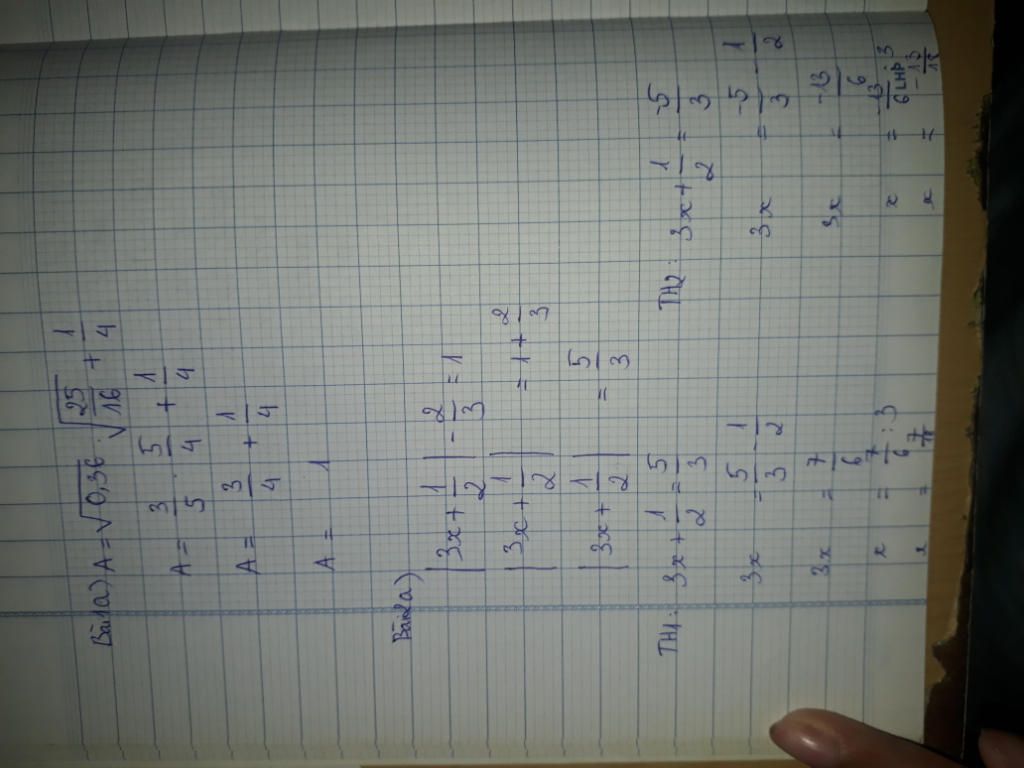 Bài 1a) A = √0,36 . √25/√16 + 1/4
A = 3/5 . 5/4 + 1/4
A = 3/4 + 1/4
A = 1
Bài 2a)
|3x + 1/2| - 2/3 = 1
|3x + 1/2| = 1 + 2/3
|3x + 1/2| = 5/3
TH1: 3x + 1/2 = 5/3
3x = 5/3 - 1/2
3x = 7/6
x = 7/6 : 3
x = 7/18
TH2: 3x + 1/2 = -5/3
3x = -5/3 - 1/2
3x = -13/6
x = -13/6 : 3
x = -13/18